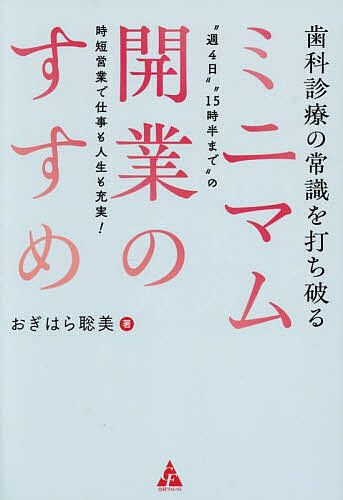 歯科診療の常識を打ち破る
ミニマム
“週4日”“15時半まで”の
開業の
時短営業で仕事も人生も充実！
すすめ
おぎはら聡美 著
合同フォレスト